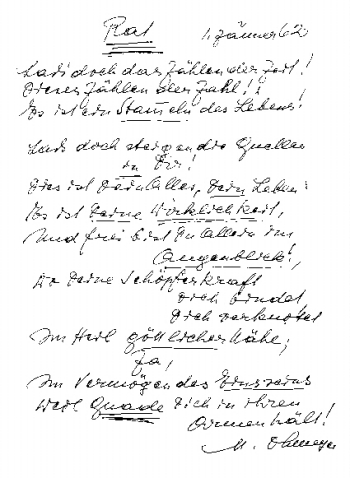 Rat 1. Jänner 62
Lass doch das Zählen der Zeit!
Dieses Zählen der Zahl!!
Es ist ein Stammeln des Lebens!
Lass doch steigen die Quellen
in Dir!
Dies ist Dein Alles, Dein Leben:
Es ist Deine Wirklichkeit,
Und frei bist Du allein im
Augenblick!,
Wo Deine Schöpferkraft
Dich bindet
Dich verknotet
Im Heil göttlicher Nähe,
Ja,
Im Vermögen des Einsseins
Weil Gnade Dich in ihren
Armen hält!
M.